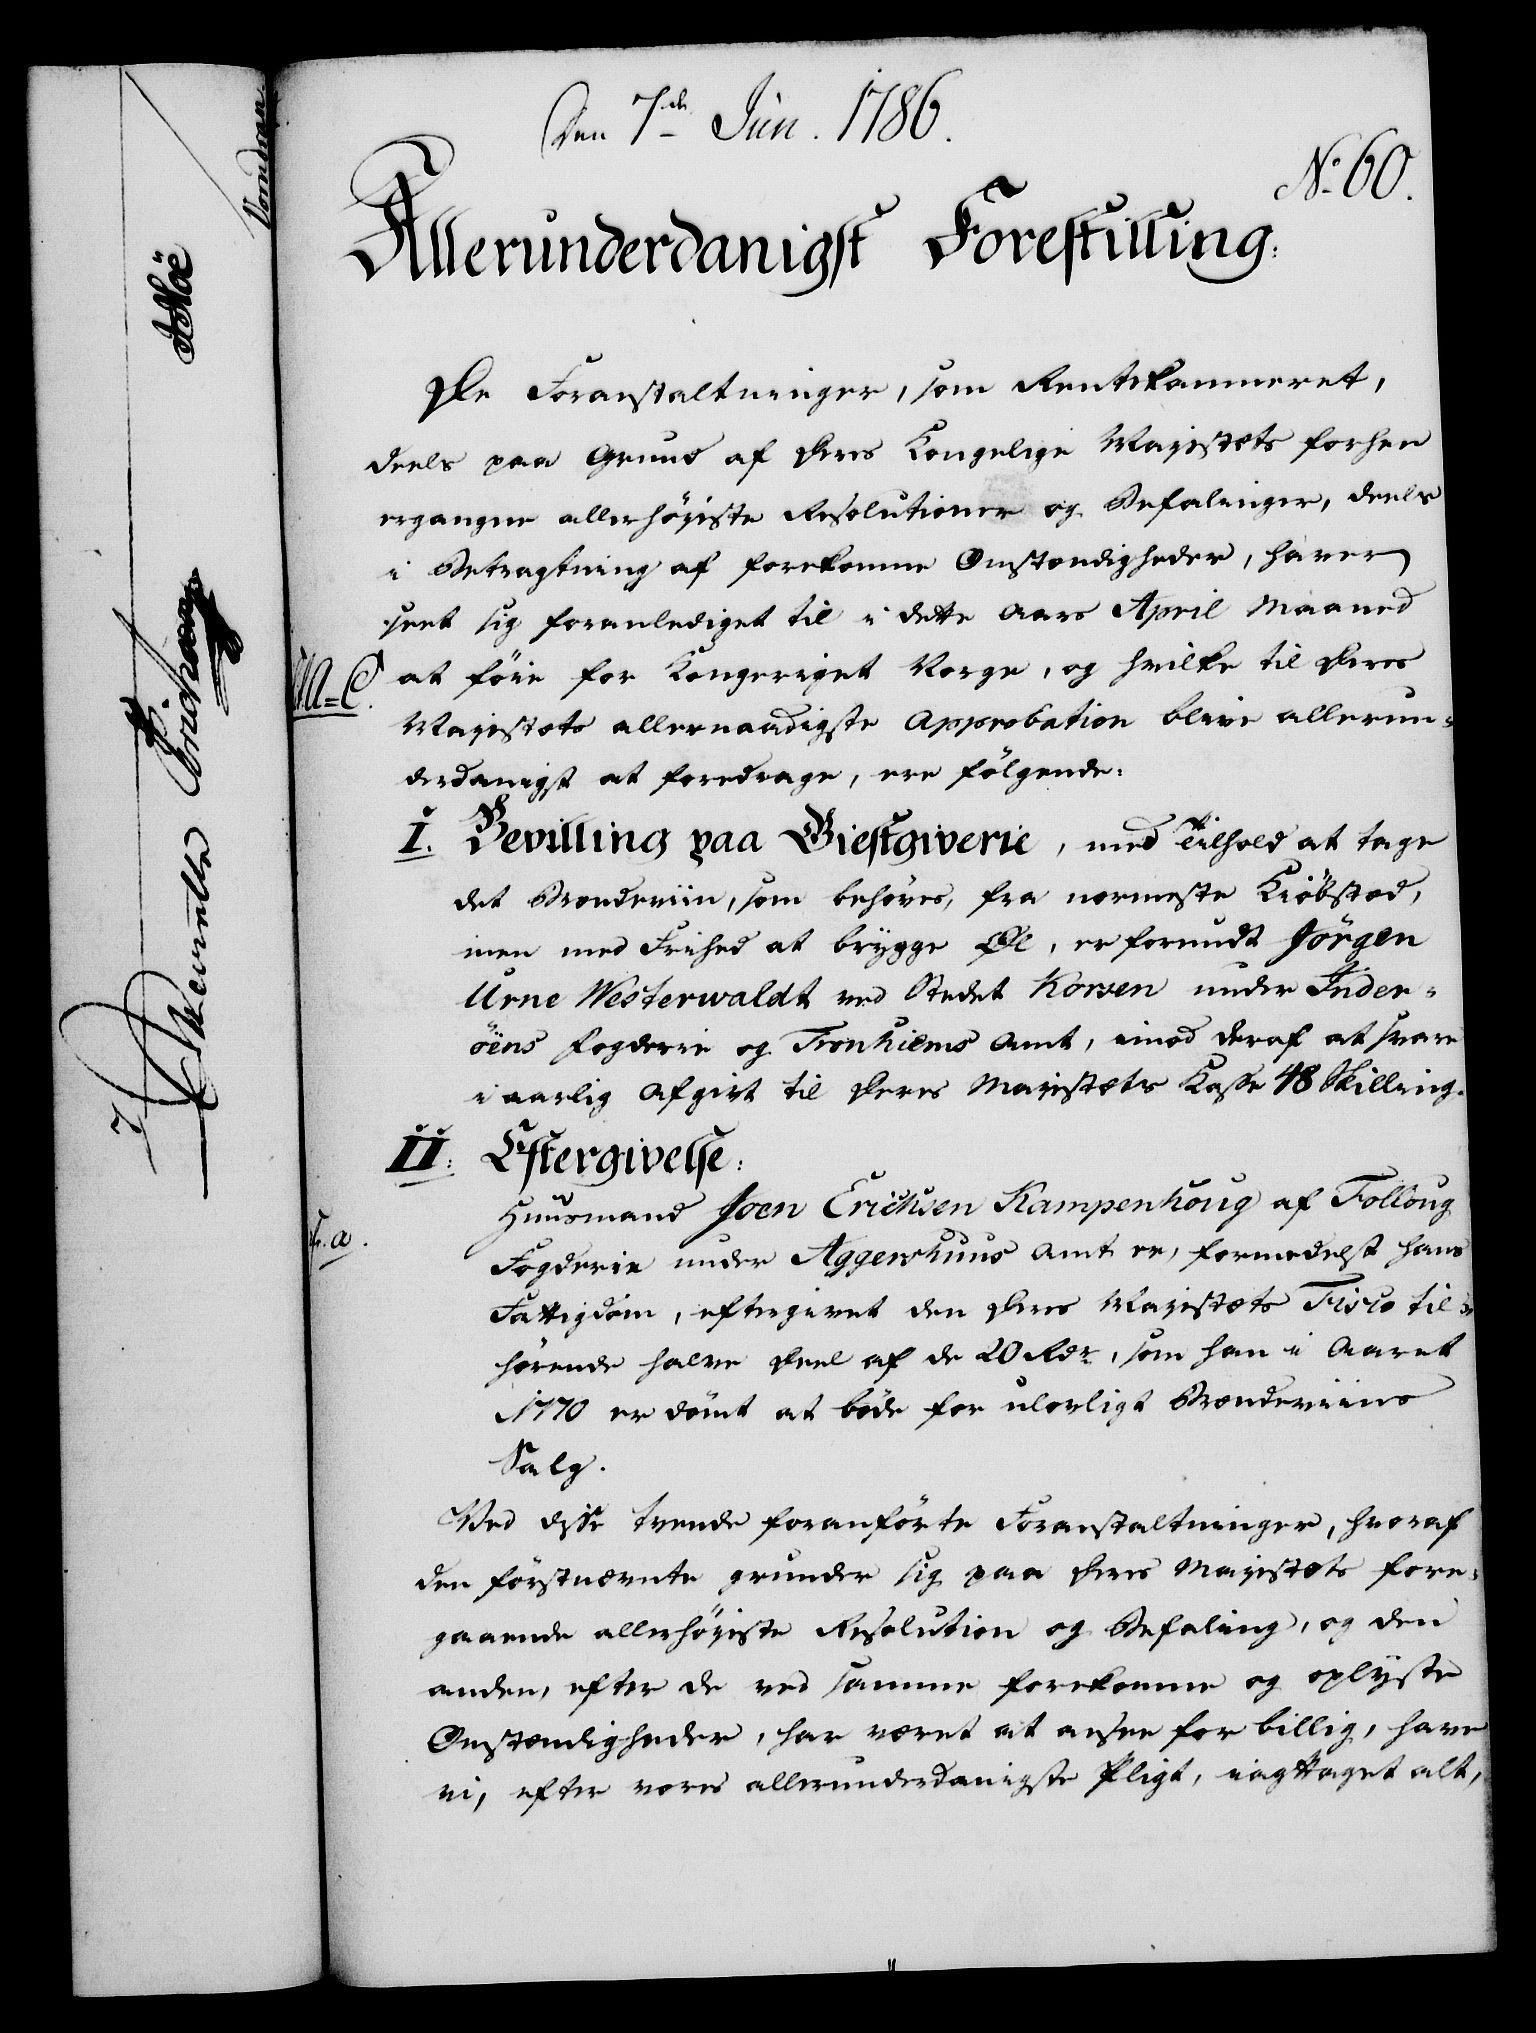 Den 7de Jun. 1786.
No 60.
Allerunderdanigst Forestilling:
De Foranstaltninger, som Rentekammeret,
deels paa Grund af Deres Kongelige Majestæts forhen
ergangne allerhöyeste Resolutioner og Befalinger, deels
i Betragtning af forekomne Omstændigheder, haver
seet sig foranlediget til i dette Aars April Maaned
at föie for Kongeriget Norge, og hvilke til Deres
Majestæts allernaadigste Approbation blive allerun-
derdanigst at foredrage, ere fölgende:
I. Bevilling paa Giestgiverie, med Tilhold at tage
det Brændeviin, som behöves, fra nærmeste Kiöbstæd,
men med Frihed at brygge Øl, er forundt Jörgen
Urne Westerwaldt ved Stedet Korsen under Inder-
öens Fogderie og Tronhiems Amt, imod deraf at svare
i aarlig Afgivt til Deres Majestæts Kasse 48 Skilling.
II. Eftergivelse:
Huusmand Joen Erichsen Kampenhoug af Folloug
Fogderie under Aggershuus Amt er, formedelst hans
Fattigdom, eftergivet den Deres Majestæts Fisco til-
hörende halve Deel af de 20 Rdr, som han i Aaret
1770 er dömt at böde for ulovligt Brændeviins
Salg.
Ved disse tvende foranförte Foranstaltninger, hvoraf
den förstnævnte grunder sig paa Deres Majestæts fore-
gaaende allerhöyeste Resolution og Befaling, og den
anden, efter de ved samme forekomne og oplyste
Omstændigheder, har været at ansee for billig, have
vi, efter vores allerunderdanigste Pligt, iagttaget alt,